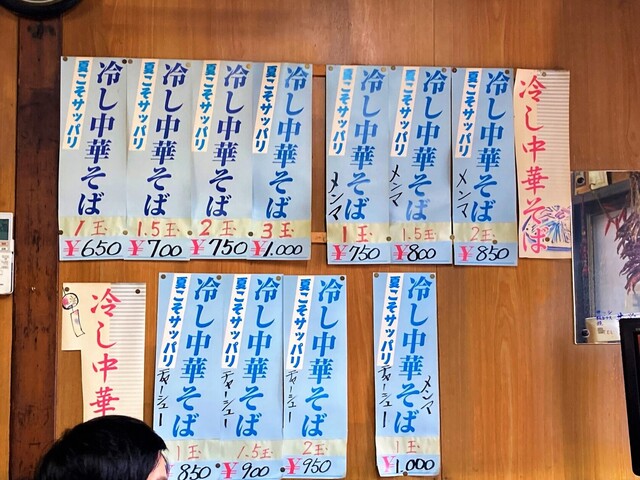 冷し中華そば
夏こそサッパリ
1玉
¥650
冷し中華そば
夏こそサッパリ
1.5玉
¥700
冷し中華そば
夏こそサッパリ
2玉
¥750
冷し中華そば
夏こそサッパリ
3玉
¥1.000
冷し中華そば
夏こそサッパリ
メンマ
1玉
¥750
冷し中華そば
夏こそサッパリ
メンマ
1.5玉
¥800
冷し中華そば
夏こそサッパリ
メンマ
2玉
¥850
冷し中華そば
冷し中華
冷し中華そば
夏こそサッパリ
チャーシュー
1玉
¥850
冷し中華そば
夏こそサッパリ
チャーシュー
1.5玉
¥900
冷し中華そば
夏こそサッパリ
チャーシュー
2玉
¥950
冷し中華そば
夏こそサッパリ
メンマ
チャーシュー
1玉
¥1.000